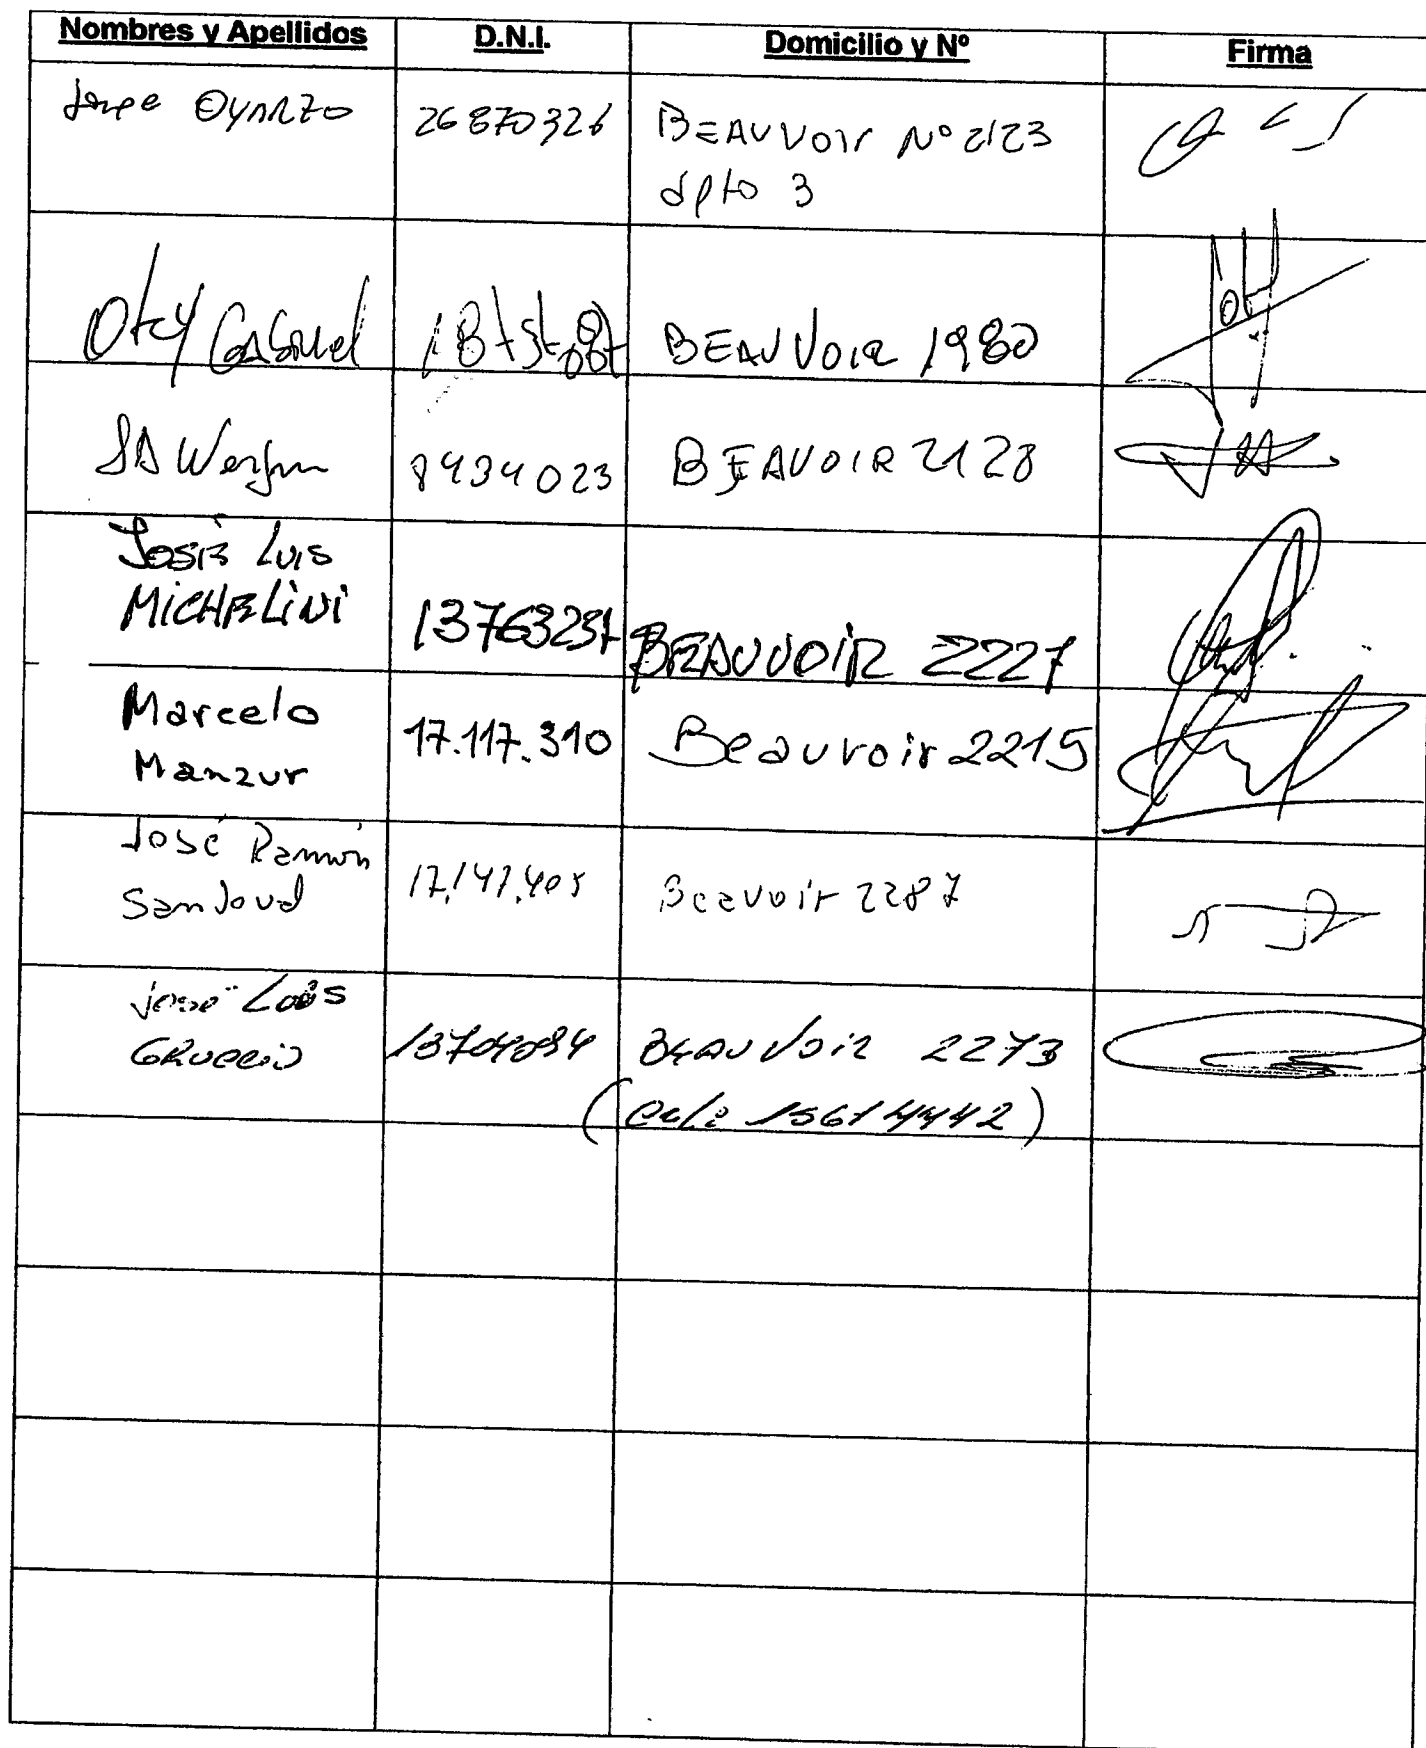 Nombres y Apellidos D.N.I. Domicilio y Nº Firma
Jorge OYARZO 26870326 BEAUVOIR Nº 2123
dpto 3
BEAUVOIR 1980
8434023 BEAVOIR 2128
José Luis
MICHELINI 13763237 BEAUVOIR 2227
Marcelo
Manzur 17.117.310 Beauvoir 2215
José Ramón
Sandoval 17.147.405 Beavoir 2287
José Luis
BEAUVOIR 2273
15614442)